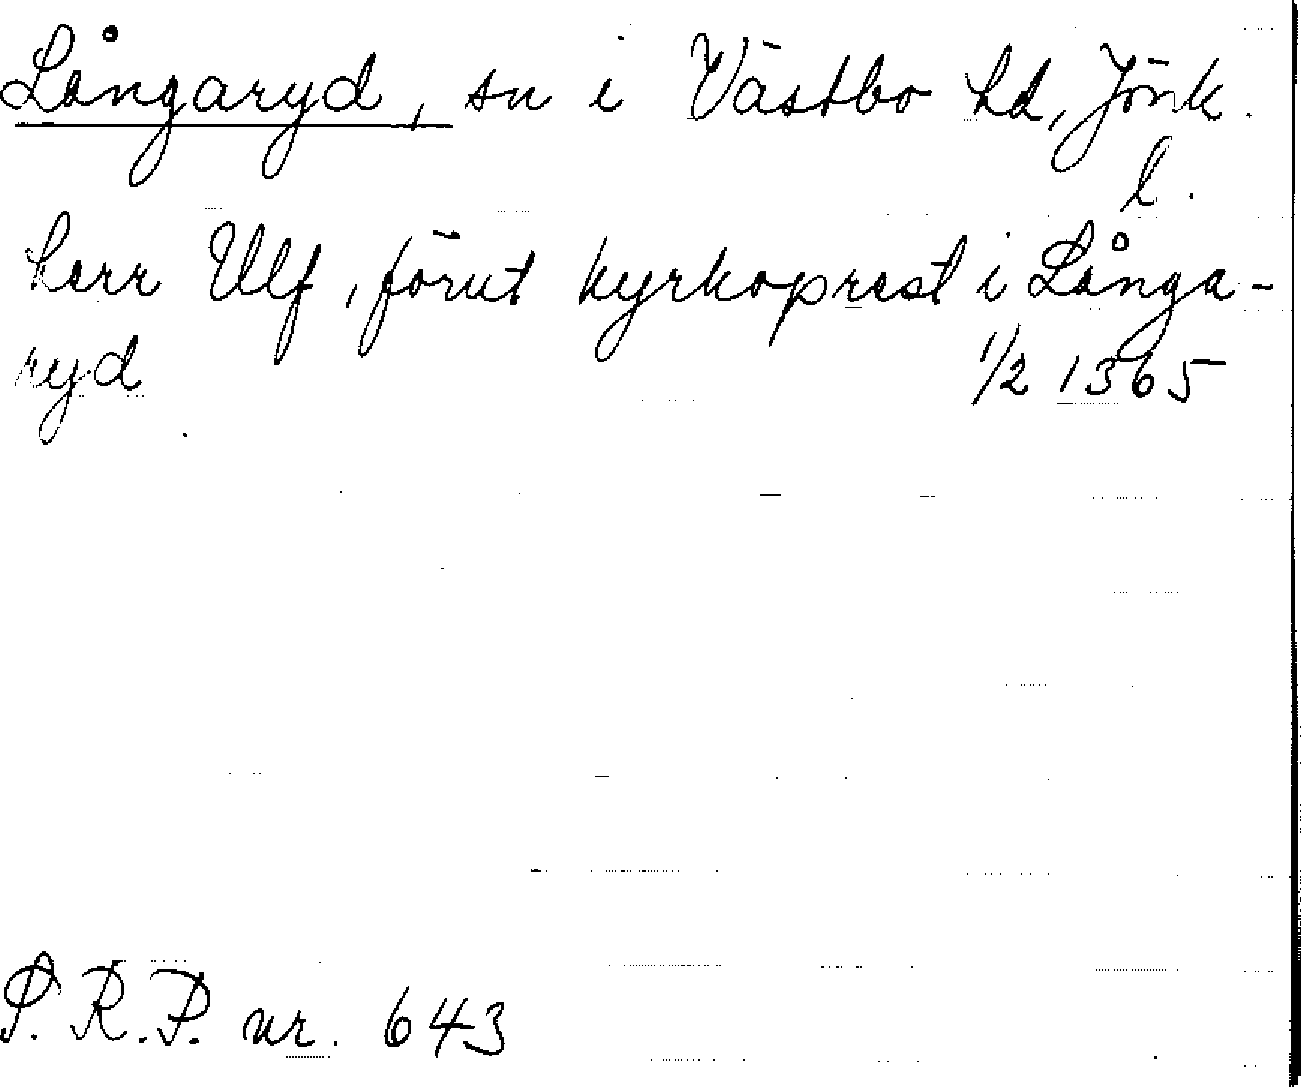 Långaryd, sn i Västbo hd, Jönk.
l.
herr Ulf, förut kyrkoprest i Långa-
ryd 1/2 1365
S.R.P. nr. 643